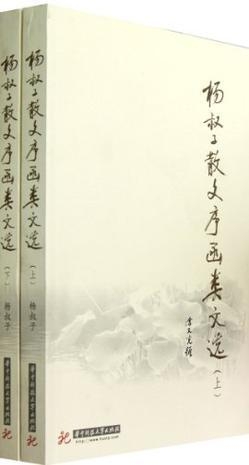 杨叔子散文序函类文选（下）
杨叔子
华中科技大学出版社
杨叔子散文序函类文选（上）
杨叔子
华中科技大学出版社
杨叔子散文序函类文选（上）
华中科技大学出版社
http://www.hustp.com